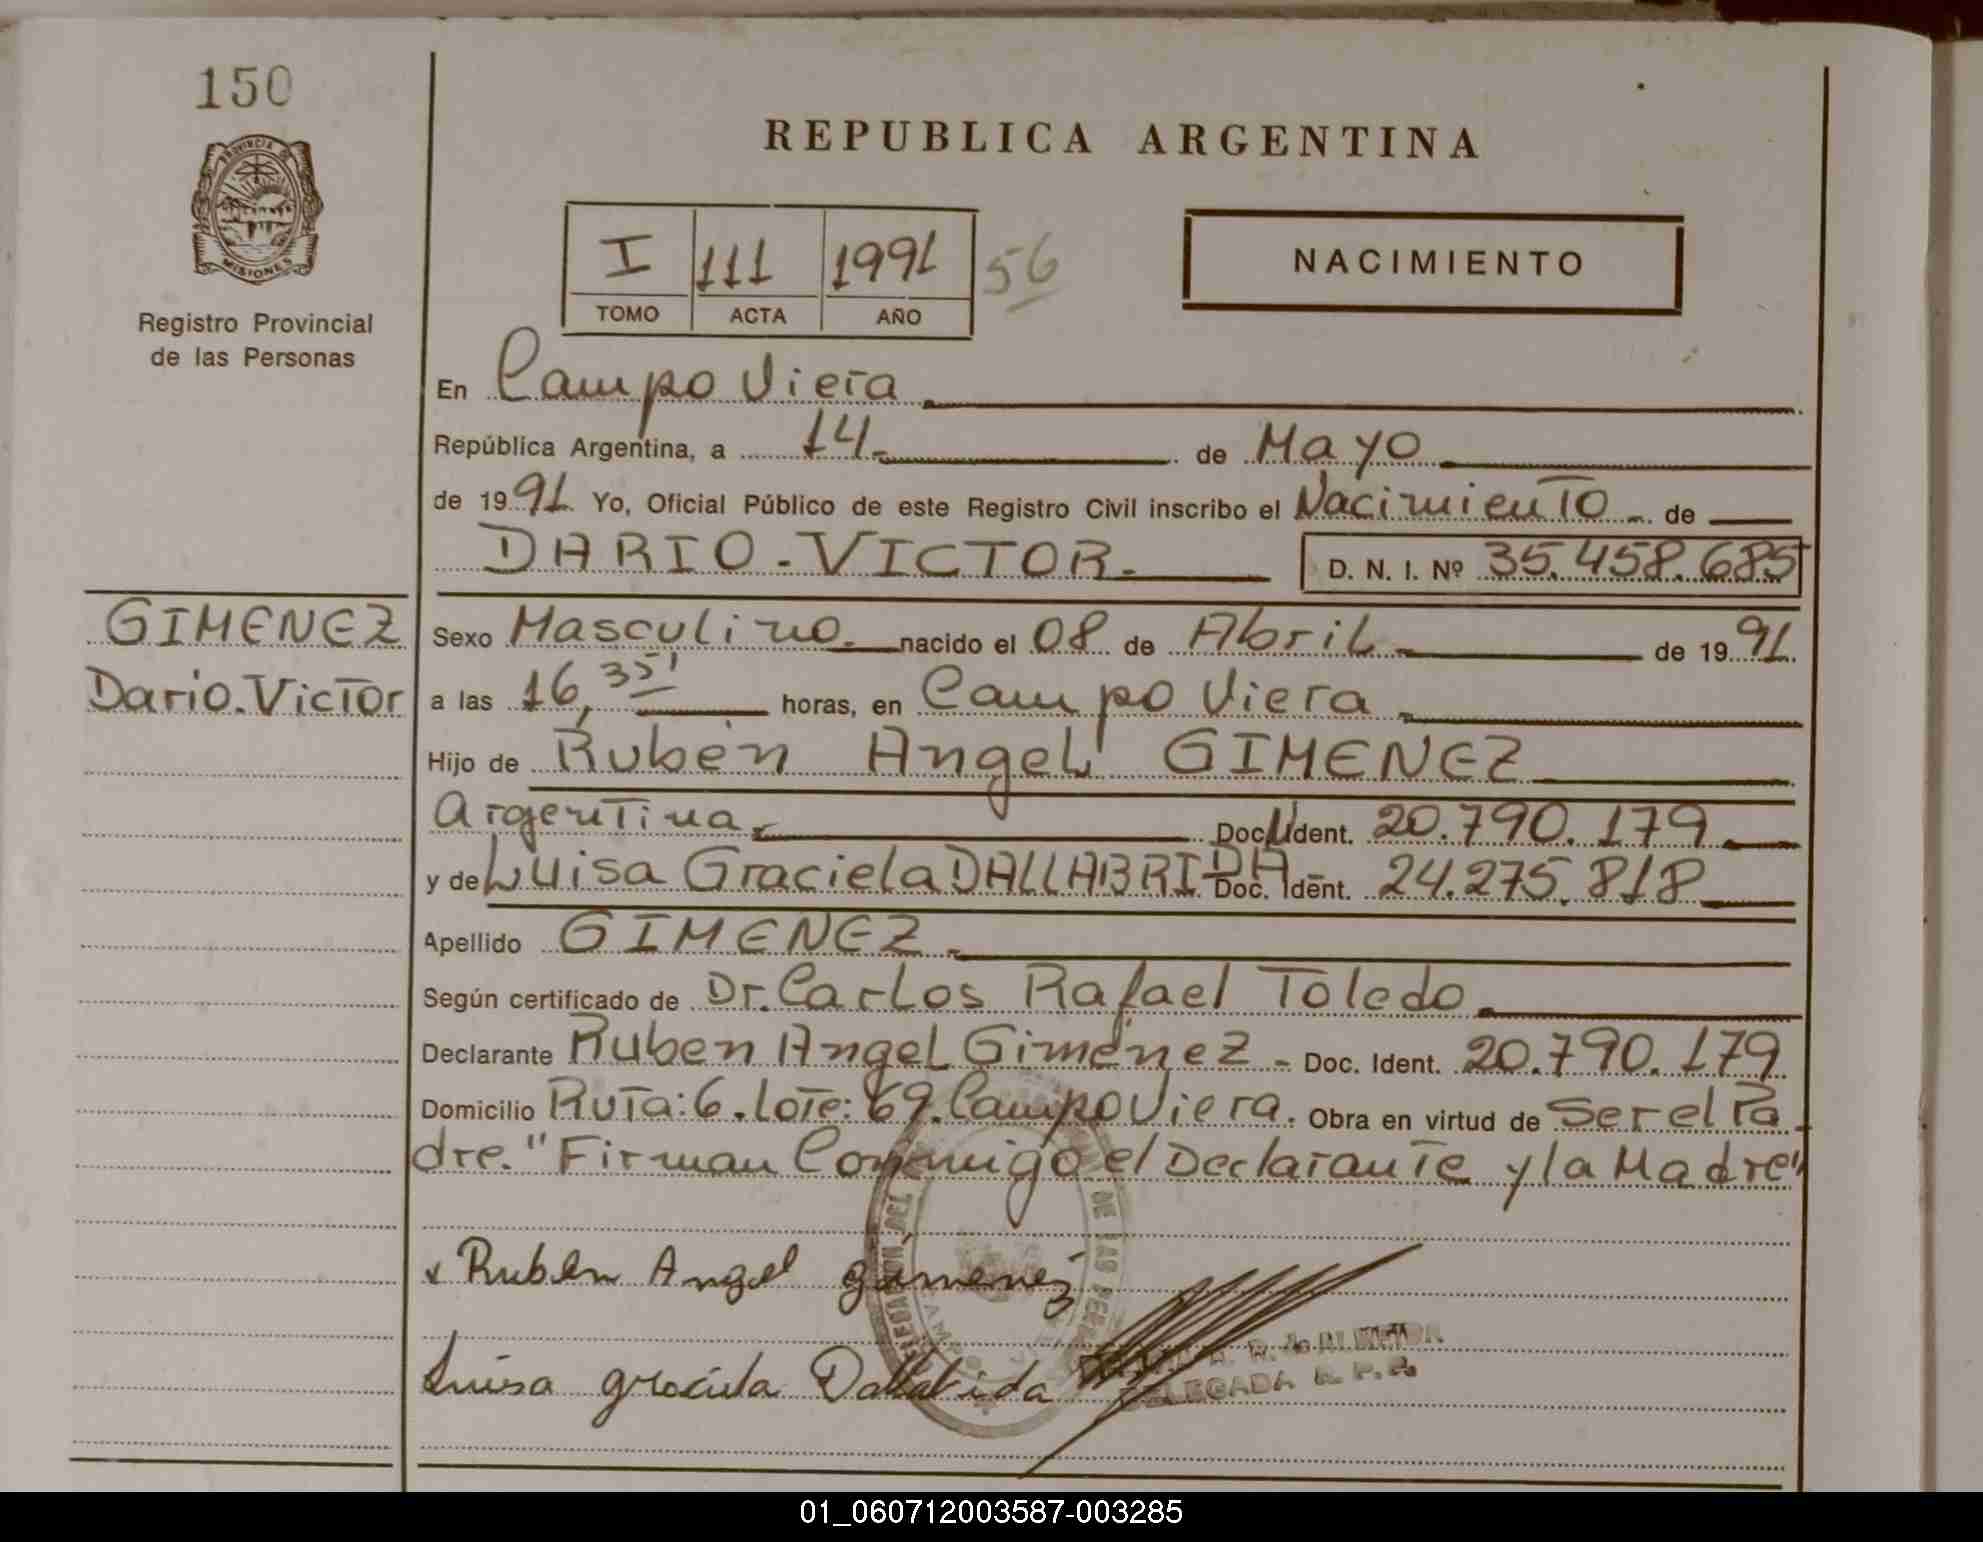 150
PROVINCIA DE
MISIONES
Registro Provincial
de las Personas
REPUBLICA ARGENTINA
I 111 1991 56
TOMO ACTA AÑO
NACIMIENTO
En Campo Viera
República Argentina, a 14 de Mayo
de 1991 Yo, Oficial Público de este Registro Civil inscribo el Nacimiento de
DARIO - VICTOR. D. N. I. Nº 35.458.685
GIMENEZ
Dario. Victor
Sexo Masculino. nacido el 08 de Abril de 1991.
a las 16,35' horas, en Campo Viera
Hijo de Ruben Angel GIMENEZ
Argentina Doc. Ident. 20.790.179
y de Luisa Graciela DALLABRIDA Doc. Ident. 24.275.818
Apellido GIMENEZ.
Según certificado de Dr. Carlos Rafael Toledo
Declarante Ruben Angel Gimenez - Doc. Ident. 20.790.179
Domicilio Ruta: 6. Lote: 69. Campo Viera. Obra en virtud de Ser el Pa-
dre. "Firman Conmigo el Declarante y la Madre"
x Ruben Angel gimenez
Luisa graciela Dallabrida
R. de ALMEIDA
DELEGADA R. P. P.
DEL DE LAS
01_060712003587-003285